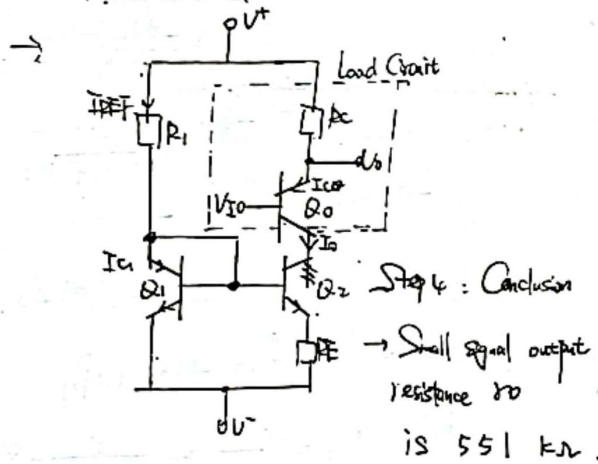 →
V⁺
Load Crcuit
IREF
R₁
Rc
VIO
Ic1
Q₀
I₀
Q₁
Q₂
RE
V⁻
Step 4 : Conclusion
→ Small signal output
resistance ro
is 551 kΩ.